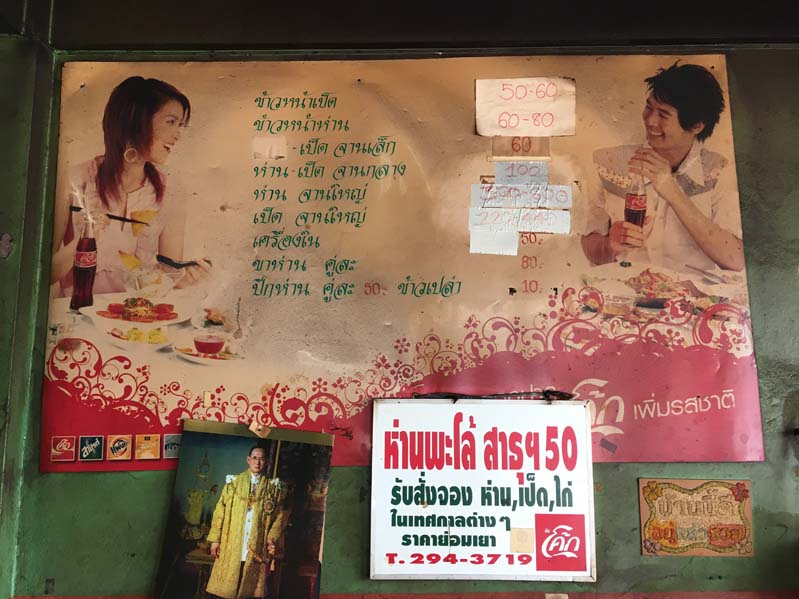 ข้าวหน้าเป็ด 50-60
ข้าวหน้าห่าน 60-80
-เป็ด จานเล็ก 60
ห่าน-เป็ด จานกลาง 100
ห่าน จานใหญ่
เป็ด จานใหญ่
เครื่องใน 50.
ขาห่าน คู่ละ 80.
ปีกห่าน คู่ละ 50. ข้าวเปล่า 10.
โค้ก เพิ่มรสชาติ
ห่านพะโล้ สาธุฯ 50
รับสั่งจอง ห่าน,เป็ด,ไก่
ในเทศกาลต่าง ๆ
ราคาย่อมเยา
โค้ก
T. 294-3719
บ้านนี้
อยู่แล้วรวย